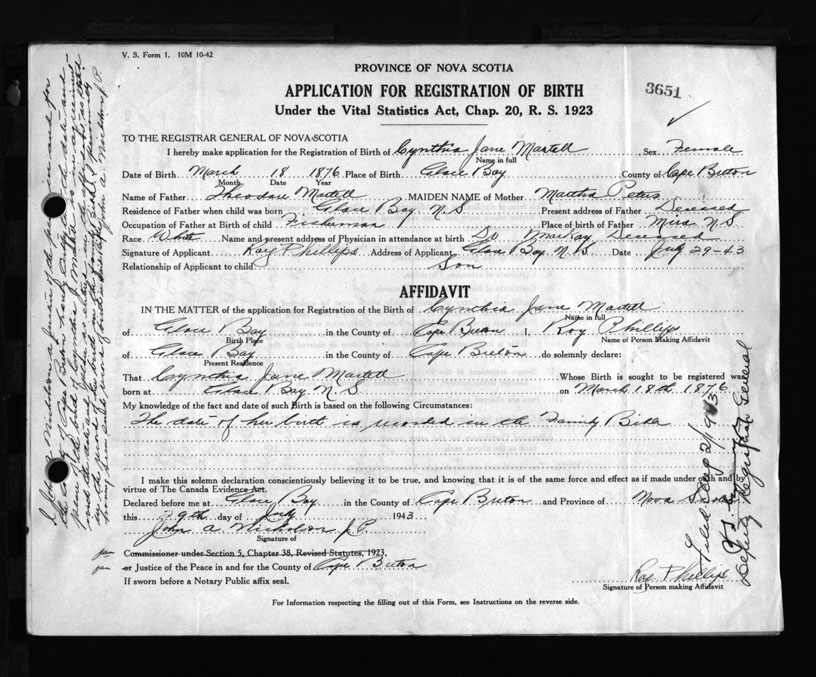 V. S. Form 1. 10M 10-42
PROVINCE OF NOVA SCOTIA
3651
APPLICATION FOR REGISTRATION OF BIRTH
Under the Vital Statistics Act, Chap. 20, R. S. 1923
TO THE REGISTRAR GENERAL OF NOVA SCOTIA
I hereby make application for the Registration of Birth of Cynthia Jane Martell , Sex Female
Name in full
Date of Birth March 18 1876 Place of Birth Glace Bay County of Cape Breton
Month Date Year
Name of Father Theodore Martell MAIDEN NAME of Mother Martha Peters
Residence of Father when child was born Glace Bay N.S Present address of Father Deceased
Occupation of Father at Birth of child Fisherman Place of birth of Father Mira N.S
Race White Name and present address of Physician in attendance at birth Dr MacKay Deceased
Signature of Applicant Roy Phillips Address of Applicant Glace Bay N.S Date July 29-43
Relationship of Applicant to child Son
AFFIDAVIT
IN THE MATTER of the application for Registration of the Birth of Cynthia Jane Martell
Name in full
of Glace Bay in the County of Cape Breton I, Roy Phillips
Birth Place Name of Person Making Affidavit
of Glace Bay in the County of Cape Breton do solemnly declare:
Present Residence
That Cynthia Jane Martell Whose Birth is sought to be registered was
born at Glace Bay N.S on March 18th 1876
My knowledge of the fact and date of such Birth is based on the following Circumstances:
The date of her birth is recorded in the Family Bible
I make this solemn declaration conscientiously believing it to be true, and knowing that it is of the same force and effect as if made under oath and by
virtue of The Canada Evidence Act.
Declared before me at Glace Bay in the County of Cape Breton and Province of Nova Scotia
this 29th day of July 1943
John A. Nicholson J.P.
Signature of
Commissioner under Section 5, Chapter 38, Revised Statutes, 1923,
or Justice of the Peace in and for the County of Cape Breton
If sworn before a Notary Public affix seal.
Roy Phillips
Signature of Person making Affidavit
For Information respecting the filling out of this Form, see Instructions on the reverse side.
Deputy Registrar General